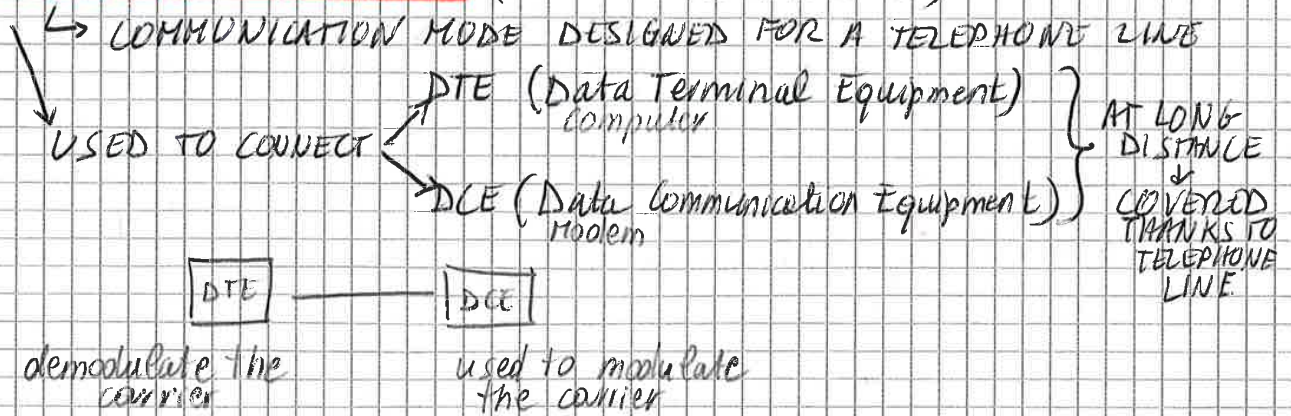 ↳ COMMUNICATION MODE DESIGNED FOR A TELEPHONE LINE
DTE (Data Terminal Equipment)
Computer
USED TO CONNECT
DCE (Data Communication Equipment)
Modem
AT LONG
DISTANCE
↓
COVERED
THANKS TO
TELEPHONE
LINE
DTE
DCE
demodulate the
carrier
used to modulate
the carrier